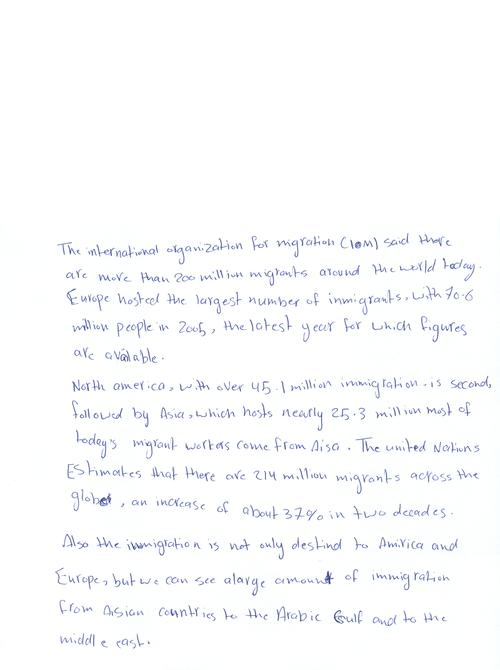 The international organization for migration (IOM) said there
are more than 200 million migrants around the world today.
Europe hosted the largest number of immigrants, with 70.6
million people in 2005, the latest year for which figures
are available.
North america, with over 45.1 million immigration . is second,
followed by Asia, which hosts nearly 25.3 million most of
today's migrant workers come from Aisa . The united Nations
Estimates that there are 214 million migrants across the
globe , an increase of about 37% in two decades.
Also the immigration is not only destind to Amirica and
Europe, but we can see alarge amount of immigration
from Aisian countries to the Arabic Gulf and to the
middle east.